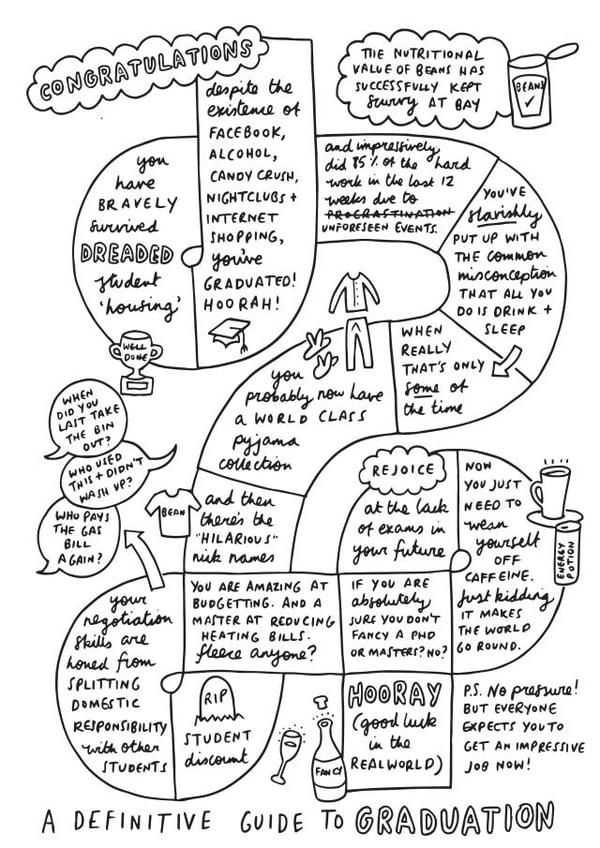 CONGRATULATIONS
despite the
existence of
FACEBOOK,
ALCOHOL,
CANDY CRUSH,
NIGHTCLUBS +
INTERNET
SHOPPING,
you've
GRADUATED!
HOORAH!
you
have
BRAVELY
survived
DREADED
student
'housing'
WELL
DONE
THE NUTRITIONAL
VALUE OF BEANS HAS
SUCCESSFULLY KEPT
scurvy AT BAY
BEANS
and impressively
did 85% of the hard
work in the last 12
weeks due to
PROCRASTINATION
UNFORESEEN EVENTS.
YOU'VE
slavishly
PUT UP WITH
THE common
misconception
THAT ALL YOU
DO IS DRINK +
SLEEP
WHEN
REALLY
THAT'S ONLY
some of
the time
you
probably now have
a WORLD CLASS
pyjama
collection
and then
there's the
"HILARIOUS"
nick names
BEAN
WHEN
DID YOU
LAST TAKE
THE BIN
OUT?
WHO USED
THIS + DIDN'T
WASH UP?
WHO PAYS
THE GAS
BILL
AGAIN?
your
negotiation
skills are
honed from
SPLITTING
DOMESTIC
RESPONSIBILITY
with other
STUDENTS
YOU ARE AMAZING AT
BUDGETTING. AND A
MASTER AT REDUCING
HEATING BILLS.
fleece anyone?
RIP
STUDENT
discount
REJOICE
at the lack
of exams in
your future
NOW
YOU JUST
NEED TO
wean
yourself
OFF
CAFFEINE.
Just kidding
IT MAKES
THE WORLD
GO ROUND.
ENERGY
POTION
IF YOU ARE
absolutely
SURE YOU DON'T
FANCY A PHD
OR MASTERS? NO?
HOORAY
(good luck
in the
REALWORLD)
FANCY
P.S. No pressure!
BUT EVERYONE
EXPECTS YOU TO
GET AN IMPRESSIVE
JOB NOW!
A DEFINITIVE GUIDE TO GRADUATION